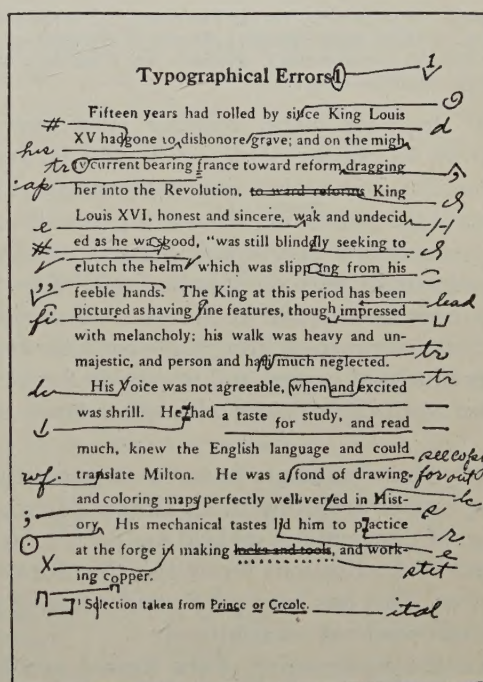 Typographical Errors 1
1
Fifteen years had rolled by since King Louis
#
XV had gone to dishonore grave; and on the migh
d
his
tr
ty current bearing france toward reform dragging
cap
her into the Revolution, to ward reforms King
Louis XVI, honest and sincere, wak and undecid
e
ed as he was good, "was still blindfly seeking to
#
clutch the helm which was slipping from his
feeble hands. The King at this period has been
lead
pictured as having fine features, though impressed
fi
with melancholy; his walk was heavy and un-
majestic, and person and hair much neglected.
tr
His Voice was not agreeable, when and excited
tr
lc
was shrill. He had a taste for study, and read
much, knew the English language and could
see copy
translate Milton. He was a fond of drawing-
wf.
for out
and coloring maps perfectly well verfed in Hist-
lc
;
s
ory His mechanical tastes lid him to practice
r
at the forge in making locks and tools, and work-
e
X
stet
ing copper.
1 Selection taken from Prince or Creole.
ital